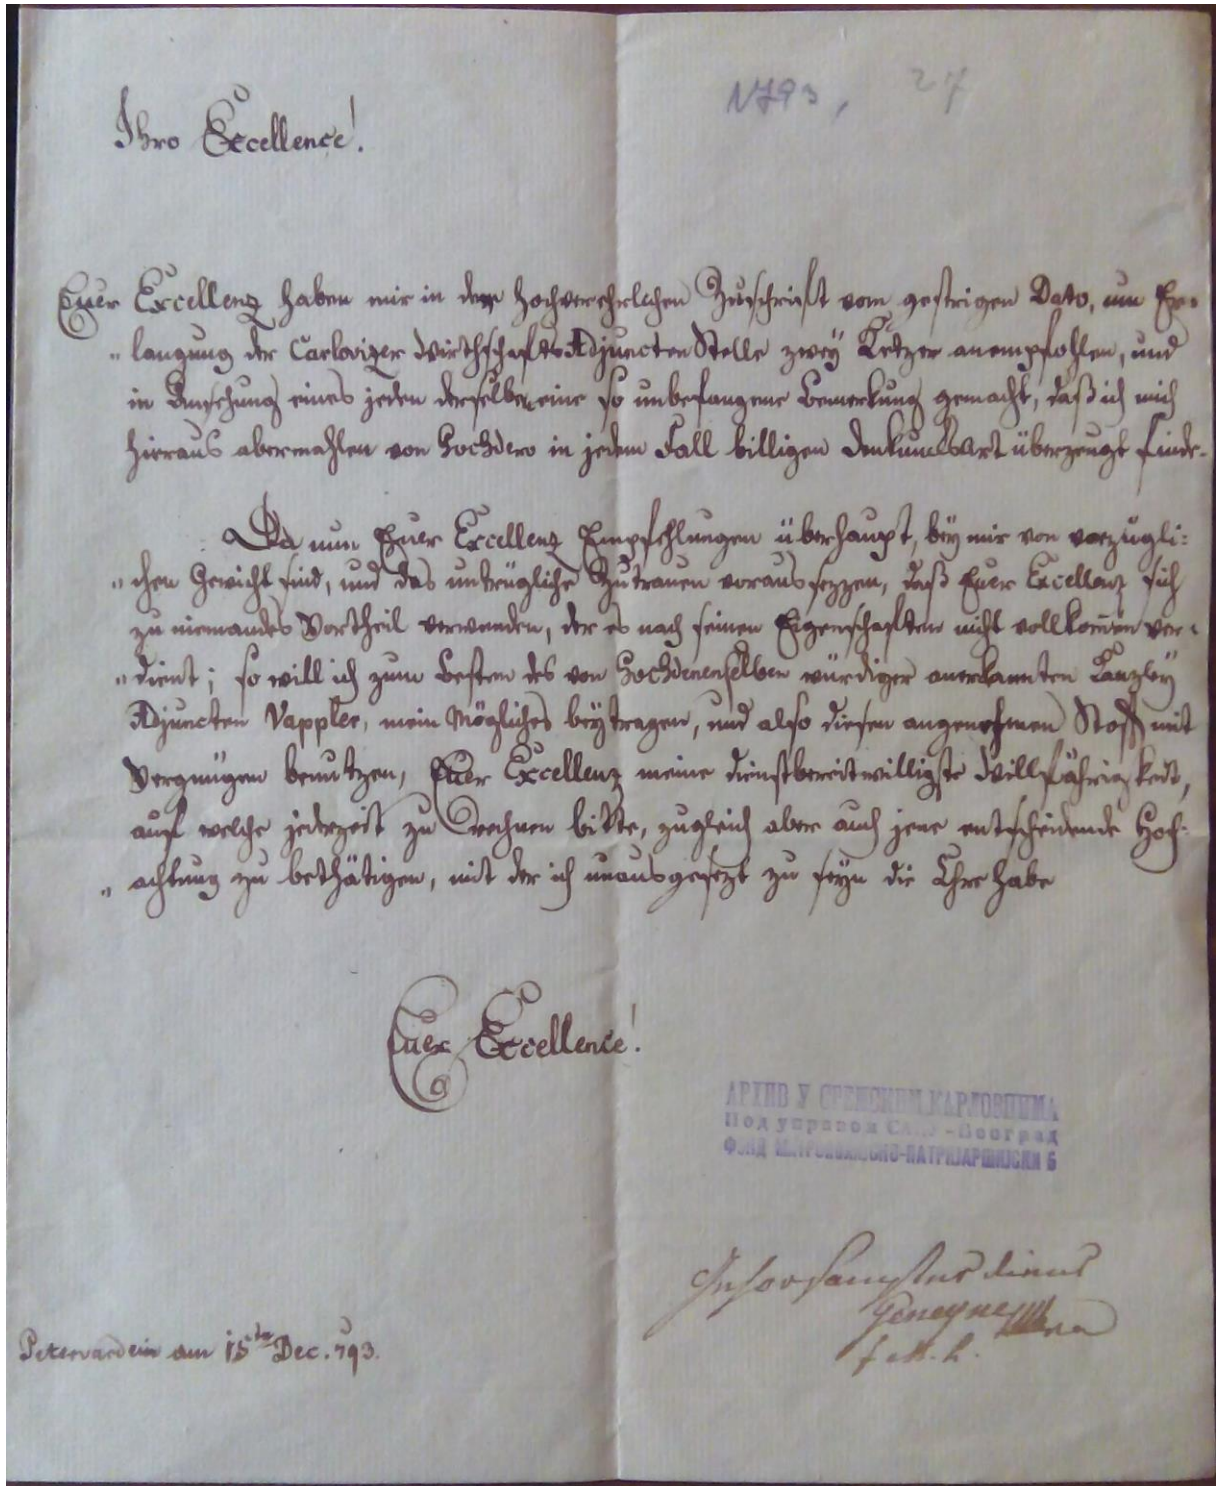 1793, 27
Ihro Excellence!
Euer Excellenz haben mir in der hochverehrlichen Zuschrift vom gestrigen Dato, um Er=
"langung der Carlovizer Wirthschafts Adjuncten Stelle zwey anempfohlen, und
in Ansehung eines jeden derselben eine so unbefangene Bemerkung gemacht, daß ich mich
hieraus abermahlen von Hochdero in jedem Fall billigen Denkungsart überzeugt finde.
Da nun Euer Excellenz Empfehlungen überhaupt, bey mir von vorzügli=
"chen Gewicht sind, und das untrügliche Zutrauen voraussezzen, daß Euer Excellenz sich
zu niemandes Vortheil verwenden, der es nach seinen Eigenschaften nicht vollkomen ver=
"dient; so will ich zum Besten des von Hochdenenselben würdiger anerkannten Kanzley
Adjuncten Vappler, mein Mögliches beytragen, und also diesen angenehmen Stoff mit
Vergnügen benutzen, Euer Excellenz meine dienstbereitwilligste Willfährigkeit,
auf welche jederzeit zu rechnen bitte, zugleich aber auch jene entscheidende Hoch=
"achtung zu bethätigen, mit der ich unausgesezt zu seyn die Ehre habe
Euer Excellence!
АРХИВ У СРЕМСКИМ КАРЛОВЦИМА
Под управом САНУ - Београд
ФОНД МИТРОПОЛИЈСКО-ПАТРИЈАРШИЈСКИ Б
gehorsamster diener
Geneyne
F.M.L.
Petervardein am 15ten Dec. 793.